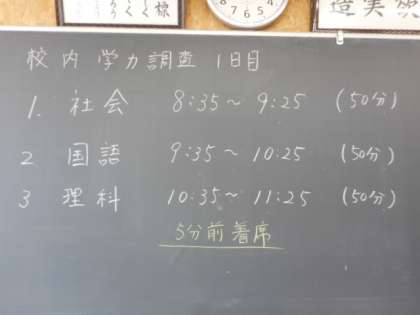 校内 学力調査 1日目
1. 社会 8:35～9:25 (50分)
2 国語 9:35～10:25 (50分)
3 理科 10:35～11:25 (50分)
5分前着席